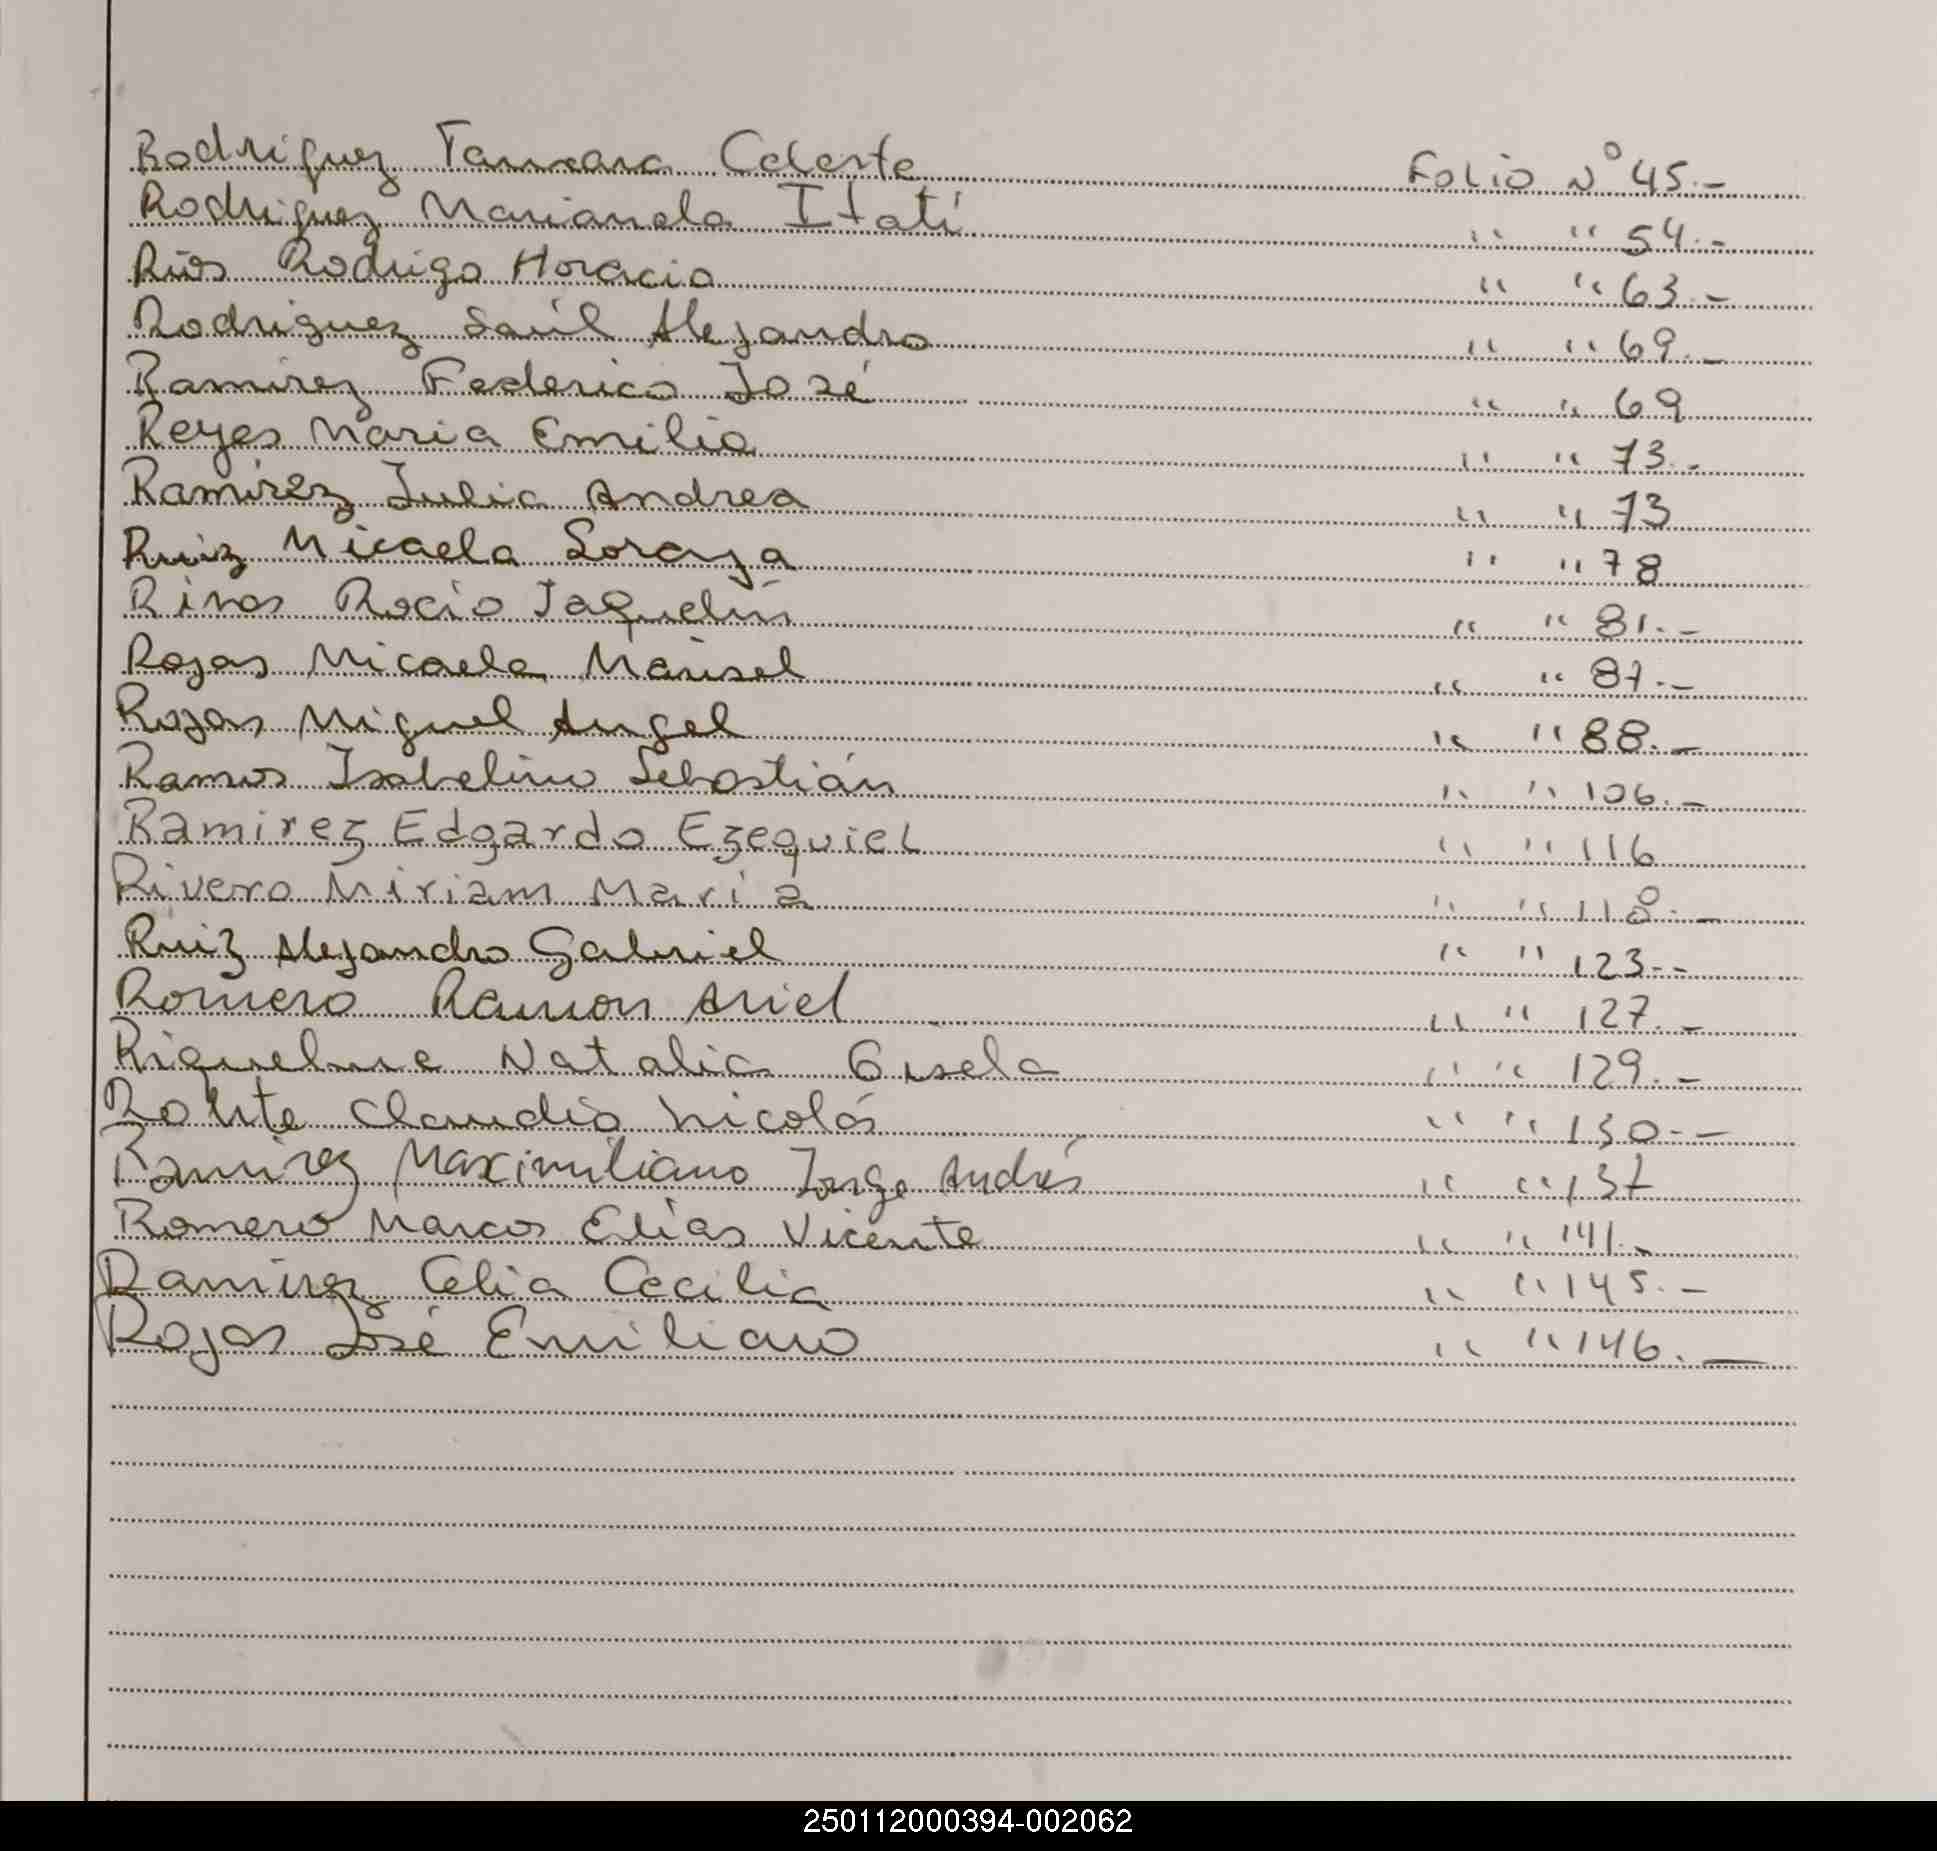 Rodriguez Tamara Celeste Folio Nº 45.-
Rodriguez Marianela Itatí " " 54.-
Ríos Rodrigo Horacio " " 63.-
Rodriguez Saúl Alejandro " " 69.-
Ramirez Federico José " " 69
Reyes Maria Emilia " " 73.-
Ramirez Julia Andrea " " 73
Ruiz Micaela Soraya " " 78
Rivas Rocio Jaquelin " " 81.-
Rojas Micaela Marisel " " 87.-
Rojas Miguel Angel " " 88.-
Ramos Isabelino Sebastián " " 106.-
Ramirez Edgardo Ezequiel " " 116
Rivero Miriam Maria " " 118.-
Ruiz Alejandro Gabriel " " 123.-
Romero Ramon Ariel " " 127.-
Riquelme Natalia Gisela " " 129.-
Claudio Nicolás " " 130.-
Ramirez Maximiliano Jorge Andrés " " 137
Romero Marcos Elías Vicente " " 141.-
Ramirez Celia Cecilia " " 145.-
Rojas José Emiliano " " 146.-
250112000394-002062